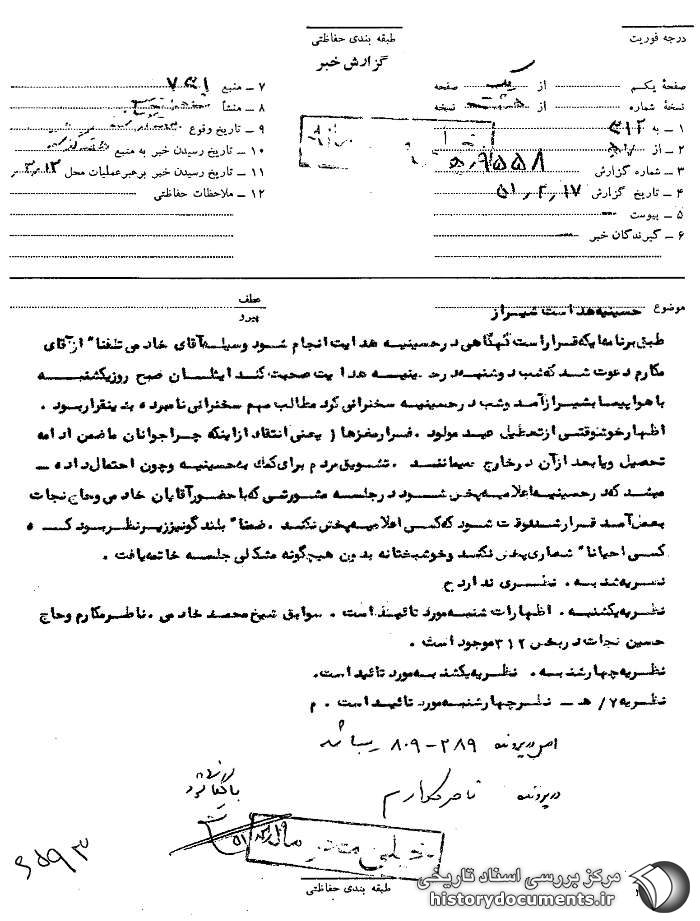 درجه فوریت
طبقه بندی حفاظتی
گزارش خبر
صفحهٔ یکم از یک صفحه
نسخهٔ شماره از نسخه
۱ – به ۳۱۲
۲ – از
۳ – شماره گزارش ۹۵۵۸
۴ – تاریخ گزارش ۵۱٫۲٫۱۷
۵ – پیوست
۶ – گیرندگان خبر
۷ – منبع
۸ – منشأ
۹ – تاریخ وقوع
۱۰ – تاریخ رسیدن خبر به منبع
۱۱ – تاریخ رسیدن خبر برهبرعملیات محل
۱۲ – ملاحظات حفاظتی
موضوع حسینیه هدایت شیراز
عطف
پیرو
طبق برنامه ایکه قرار است گهگاهی در حسینیه هدایت انجام شود وسیله آقای خادمی تلفنا" از آقای
مکارم دعوت شد که شب دوشنبه در حسینیه هدایت صحبت کند ایشان صبح روز یکشنبه
با هواپیما بشیراز آمد وشب در حسینیه سخنرانی کرد مطالب مهم سخنرانی نامبرده بدینقرار بود .
اظهار خوشوقتی از تعطیل عید مولود . فرار مغزها ( یعنی انتقاد از اینکه چرا جوانان ما ضمن ادامه
تحصیل ویا بعد از آن در خارج میمانند . تشویق مردم برای کمک به حسینیه وچون احتمال داده –
میشد که در حسینیه اعلامیه پخش شود در جلسه مشورتی که با حضور آقایان خادمی وحاج نجات
بعمل آمد قرار شد دقت شود که کسی اعلامیه پخش نکند . ضمنا" بلندگو نیز زیر نظر بود که
کسی احیانا" شعاری پخش نکند وخوشبختانه بدون هیچگونه مشکلی جلسه خاتمه یافت .
نظریه شنبه . نظری ندارد ح
نظریه یکشنبه . اظهارات شنبه مورد تائید است . سوابق شیخ محمد خادمی . ناصر مکارم وحاج
حسین نجات در بخش ۳۱۲ موجود است .
نظریه چهارشنبه . نظریه یکشنبه مورد تائید است.
نظریه ۷ / ه – نظر چهارشنبه مورد تائید است . م
اصل در پرونده ۲۸۹-۸۰۹ میباشد
در پرونده ناصر مکارم
بایگانی شود
خیلی محرمانه
طبقه بندی حفاظتی
مرکز بررسی اسناد تاریخی
historydocuments.ir